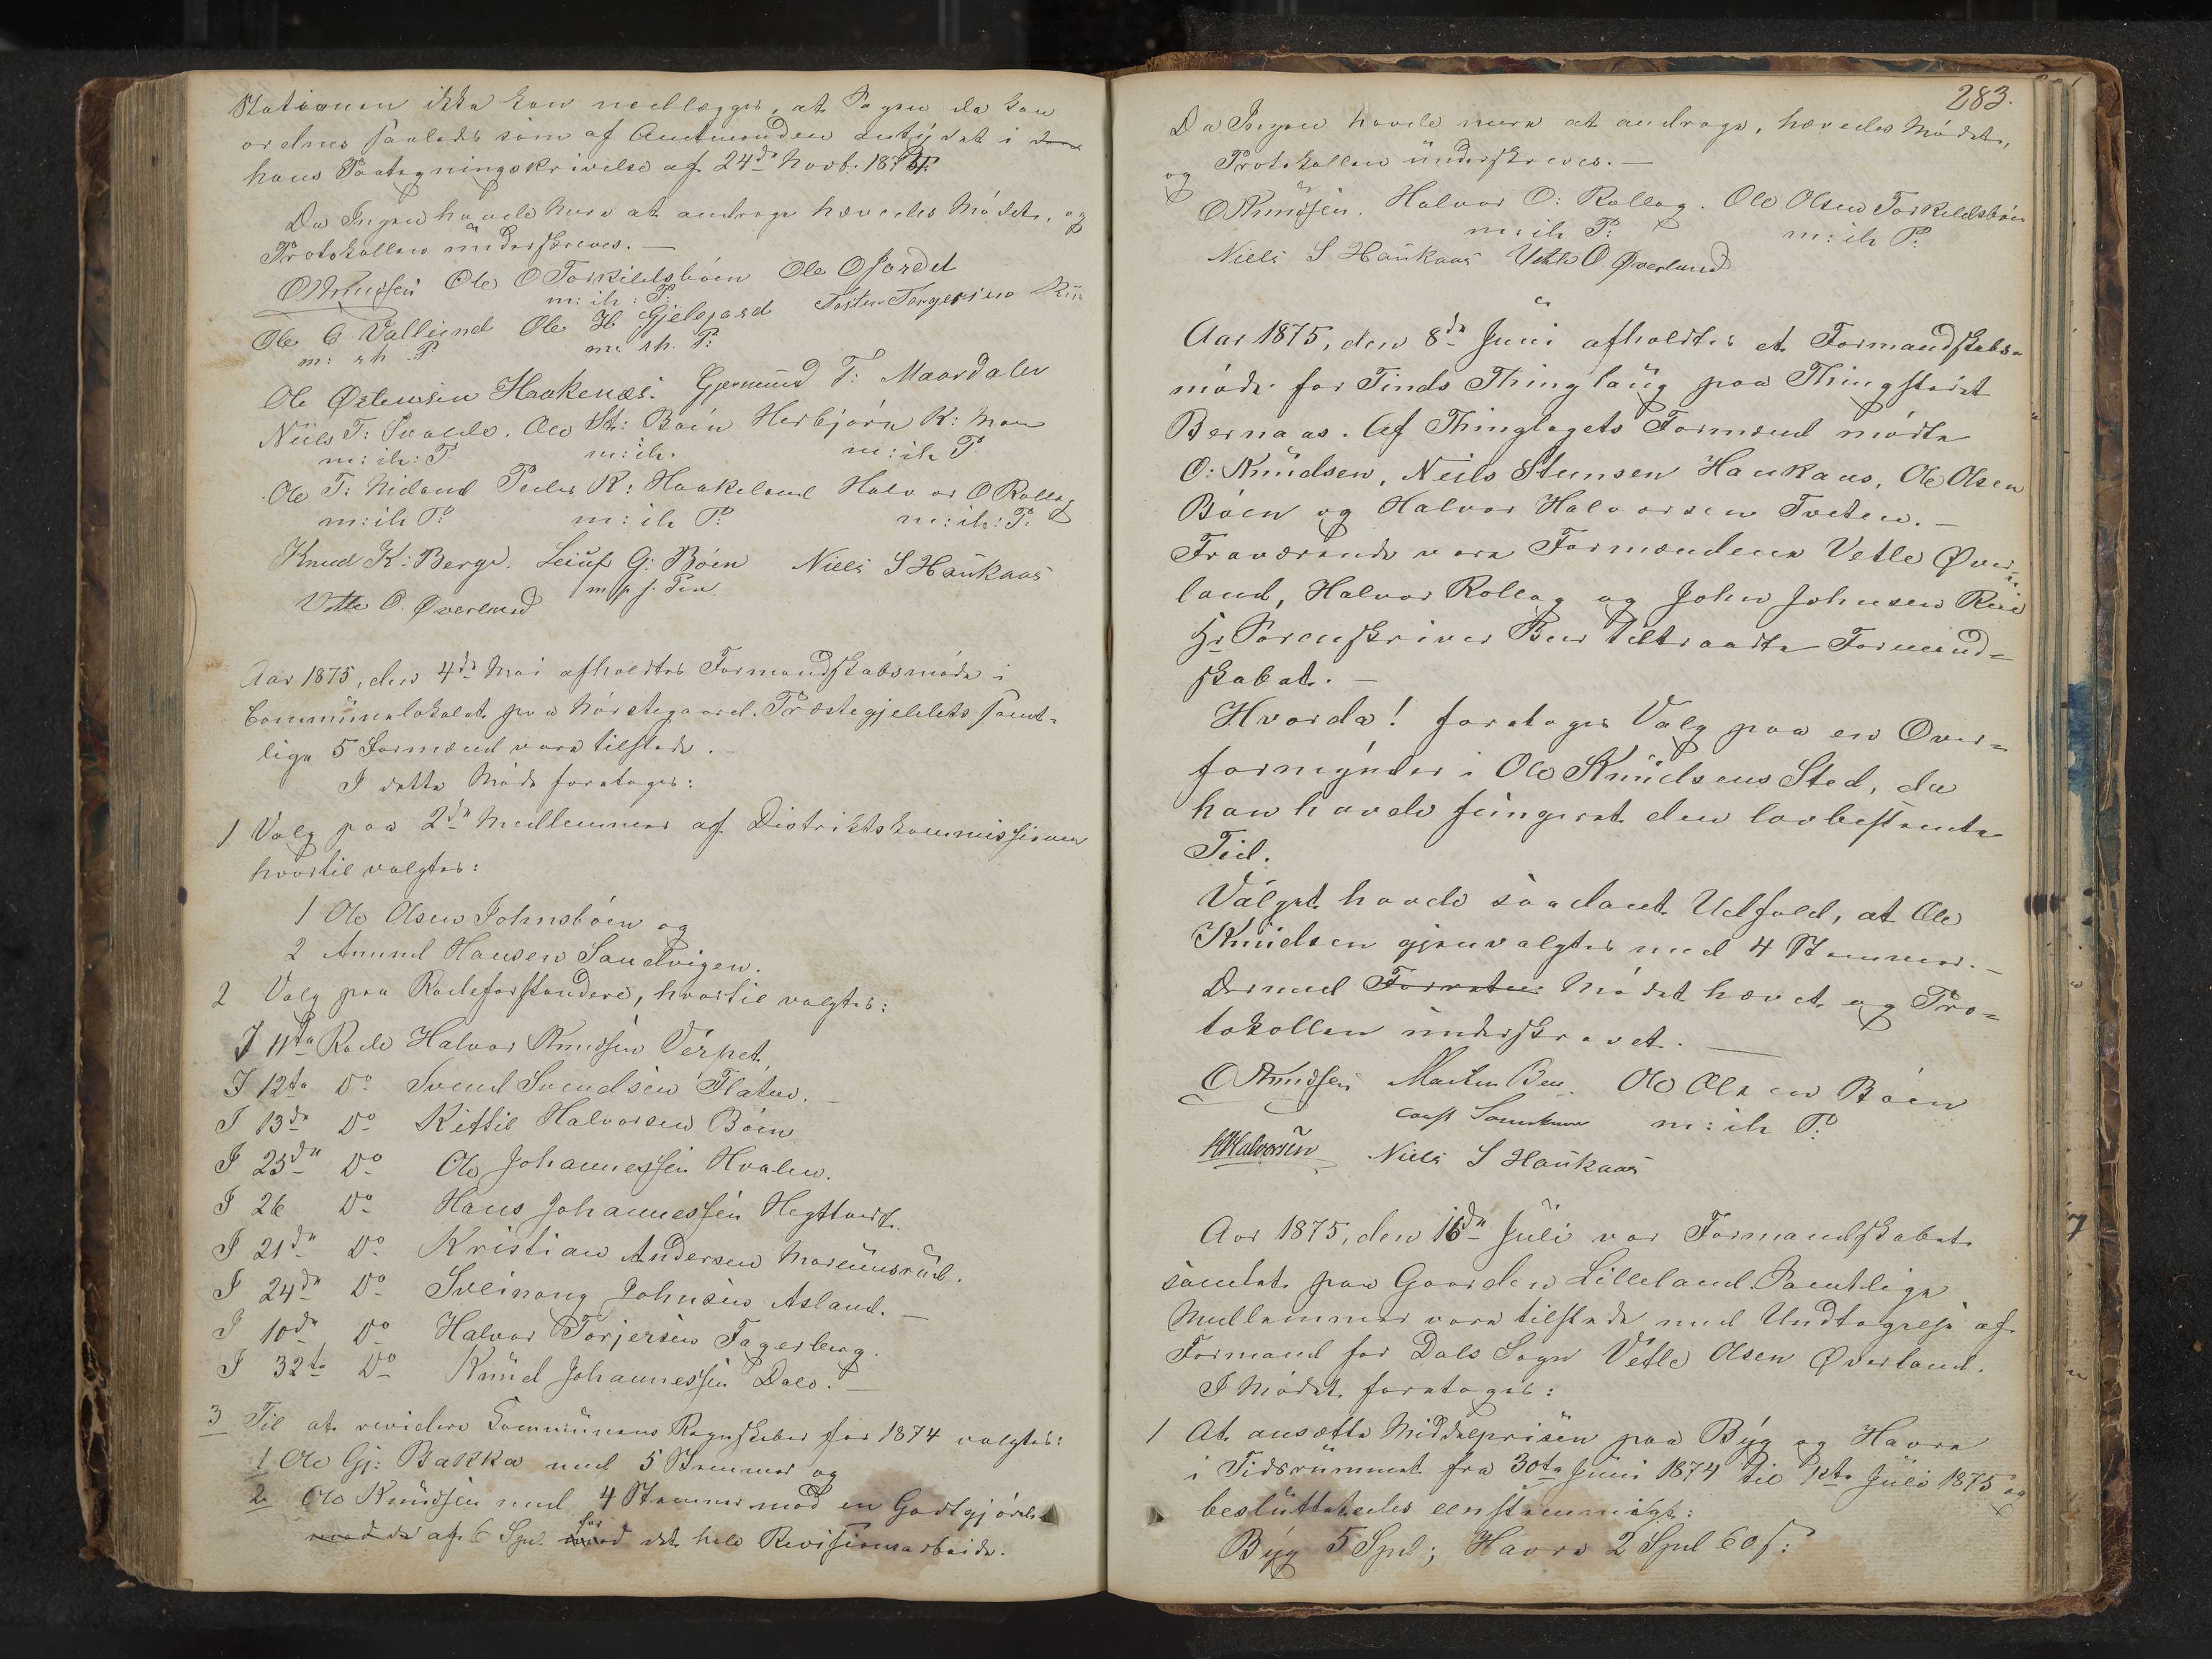 Stationen ikke kan nedlægges, at Sagen da kan
ordnes saaledes som af Amtmanden antydet i
hans Paategningsskrivelse af 24de Novbr. 1874.
Da Ingen havde mere at andrage hævedes Mødet, og
Protokollen underskreves. —
O Knudsen Ole O Torkildsbøen Ole O
m: ih: P:
Ole C Ole H Gjelsgard Torgersen
m: ih P m: ih. P:
Ole Østensen Haakenæs. Gjermund T: Maardalen
Niels T: Ole St: Bøen Herbjørn K:
m: ih: P. m: ih. m: ih P.
Ole T: Peder R: Haakeland Halvor O Rollag
m: ih P: m: ih P: m: ih: P:
Knud K: Berge. G: Bøen Niels S Haukaas
Vetle O. Øverland m. p. f. Pen.
Aar 1875, den 4de Mai afholdtes Formandskabsmøde i
Communelokalet paa Nørstegaard. Præstegjeldets samt-
lige 5 Formænd vare tilstede. —
I dette Møde foretoges:
1 Valg paa 2de Medlemmer af Distriktskommissionen
hvortil valgtes:
1 Ole Olsen Johnsbøen og
2 Amund Hansen Sandvigen.
2 Valg paa Rodeforstandere, hvortil valgtes:
I 11te Rode Halvor Knudsen Verpet
I 12te Do Svend Svendsen Flaten. —
I 13de Do Kittil Halvorsen Bøen
I 25de Do Ole Johannessen Hvalen.
I 26 Do Hans Johannessen
I 21de Do Kristian Andersen
I 24de Do Sveinong Johnsen Asland. —
I 10de Do Halvor Torjersen Fagerberg.
I 32te Do Knud Johannessen Dale. —
3 Til at revidere Communens Regnskaber for 1874 valgtes:
1 Ole Gj: Bakka med 5 Stemmer og
2 Ole Knudsen med 4 Stemmer mod en Godtgjørelse
af 6 Spd. for det hele Revisionsarbeide.
283.
Da Ingen havde mere at andrage, hævedes Mødet,
og Protokollen underskreves. —
O Knudsen. Halvor O: Rollag. Ole Olsen Torkildsbøen
m: ih P: m: ih P:
Niels S Haukaas Vetle O. Øverland
Aar 1875, den 8de Juni afholdtes et Formandskabs-
møde for Tinds Thinglaug paa Thingstedet
Bernaas. Af Thinglagets Formænd mødte
O: Knudsen, Neils Stensen Haukaas, Ole Olsen
Bøen og Halvor Halvorsen Tveten. —
Fraværende vare Formændene Vetle Øver-
land, Halvor Rollag og John Johnsen
Hr Sorenskriver Beer tiltraadte Formand-
skabet. —
Hvorda! foretoges Valg paa en Over-
formynder i Ole Knudsens Sted, da
han havde fungeret den lovbestemte
Tid.
Valget havde saadant Udfald, at Ole
Knudsen gjenvalgtes med 4 Stemmer. —
Dermed Mødet hævet og Pro-
tokollen underskrevet. —
O Knudsen Ole Olsen Bøen
m: ih P:
HHalvorsen Niels S Haukaas
Aar 1875, den 16de Juli var Formandskabet
samlet paa Gaarden Lilleland. Samtlige
Medlemmer vare tilstede med Undtagelse af
Formand for Dals Sogn Vetle Olsen Øverland.
I Mødet foretoges:
1 At ansætte Middelprisen paa Byg og Havre
i Tidsrummet fra 30te Juni 1874 til 1te Juli 1875 og
besluttedes eenstemmigt:
Byg 5 Spd; Havre 2 Spd 60 s: